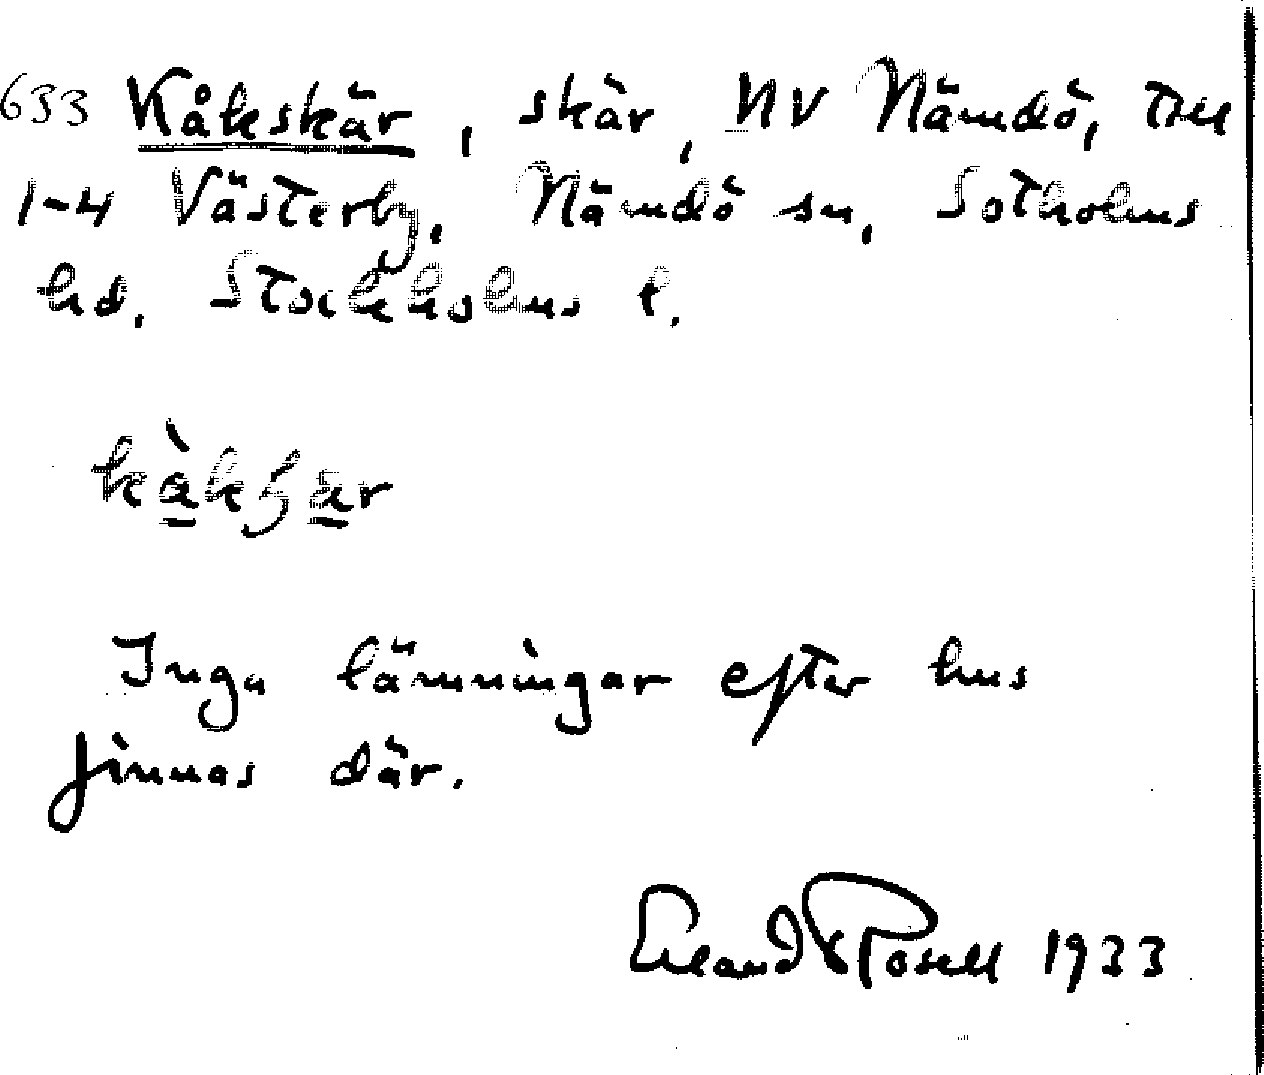 633 Kåkskär, skär, NV Nämdö, till
1-4 Västerby, Nämdö sn, Sotholms
hd, Stockholms l.
Inga lämningar efter hus
finnas där.
Erland Rosell 1933